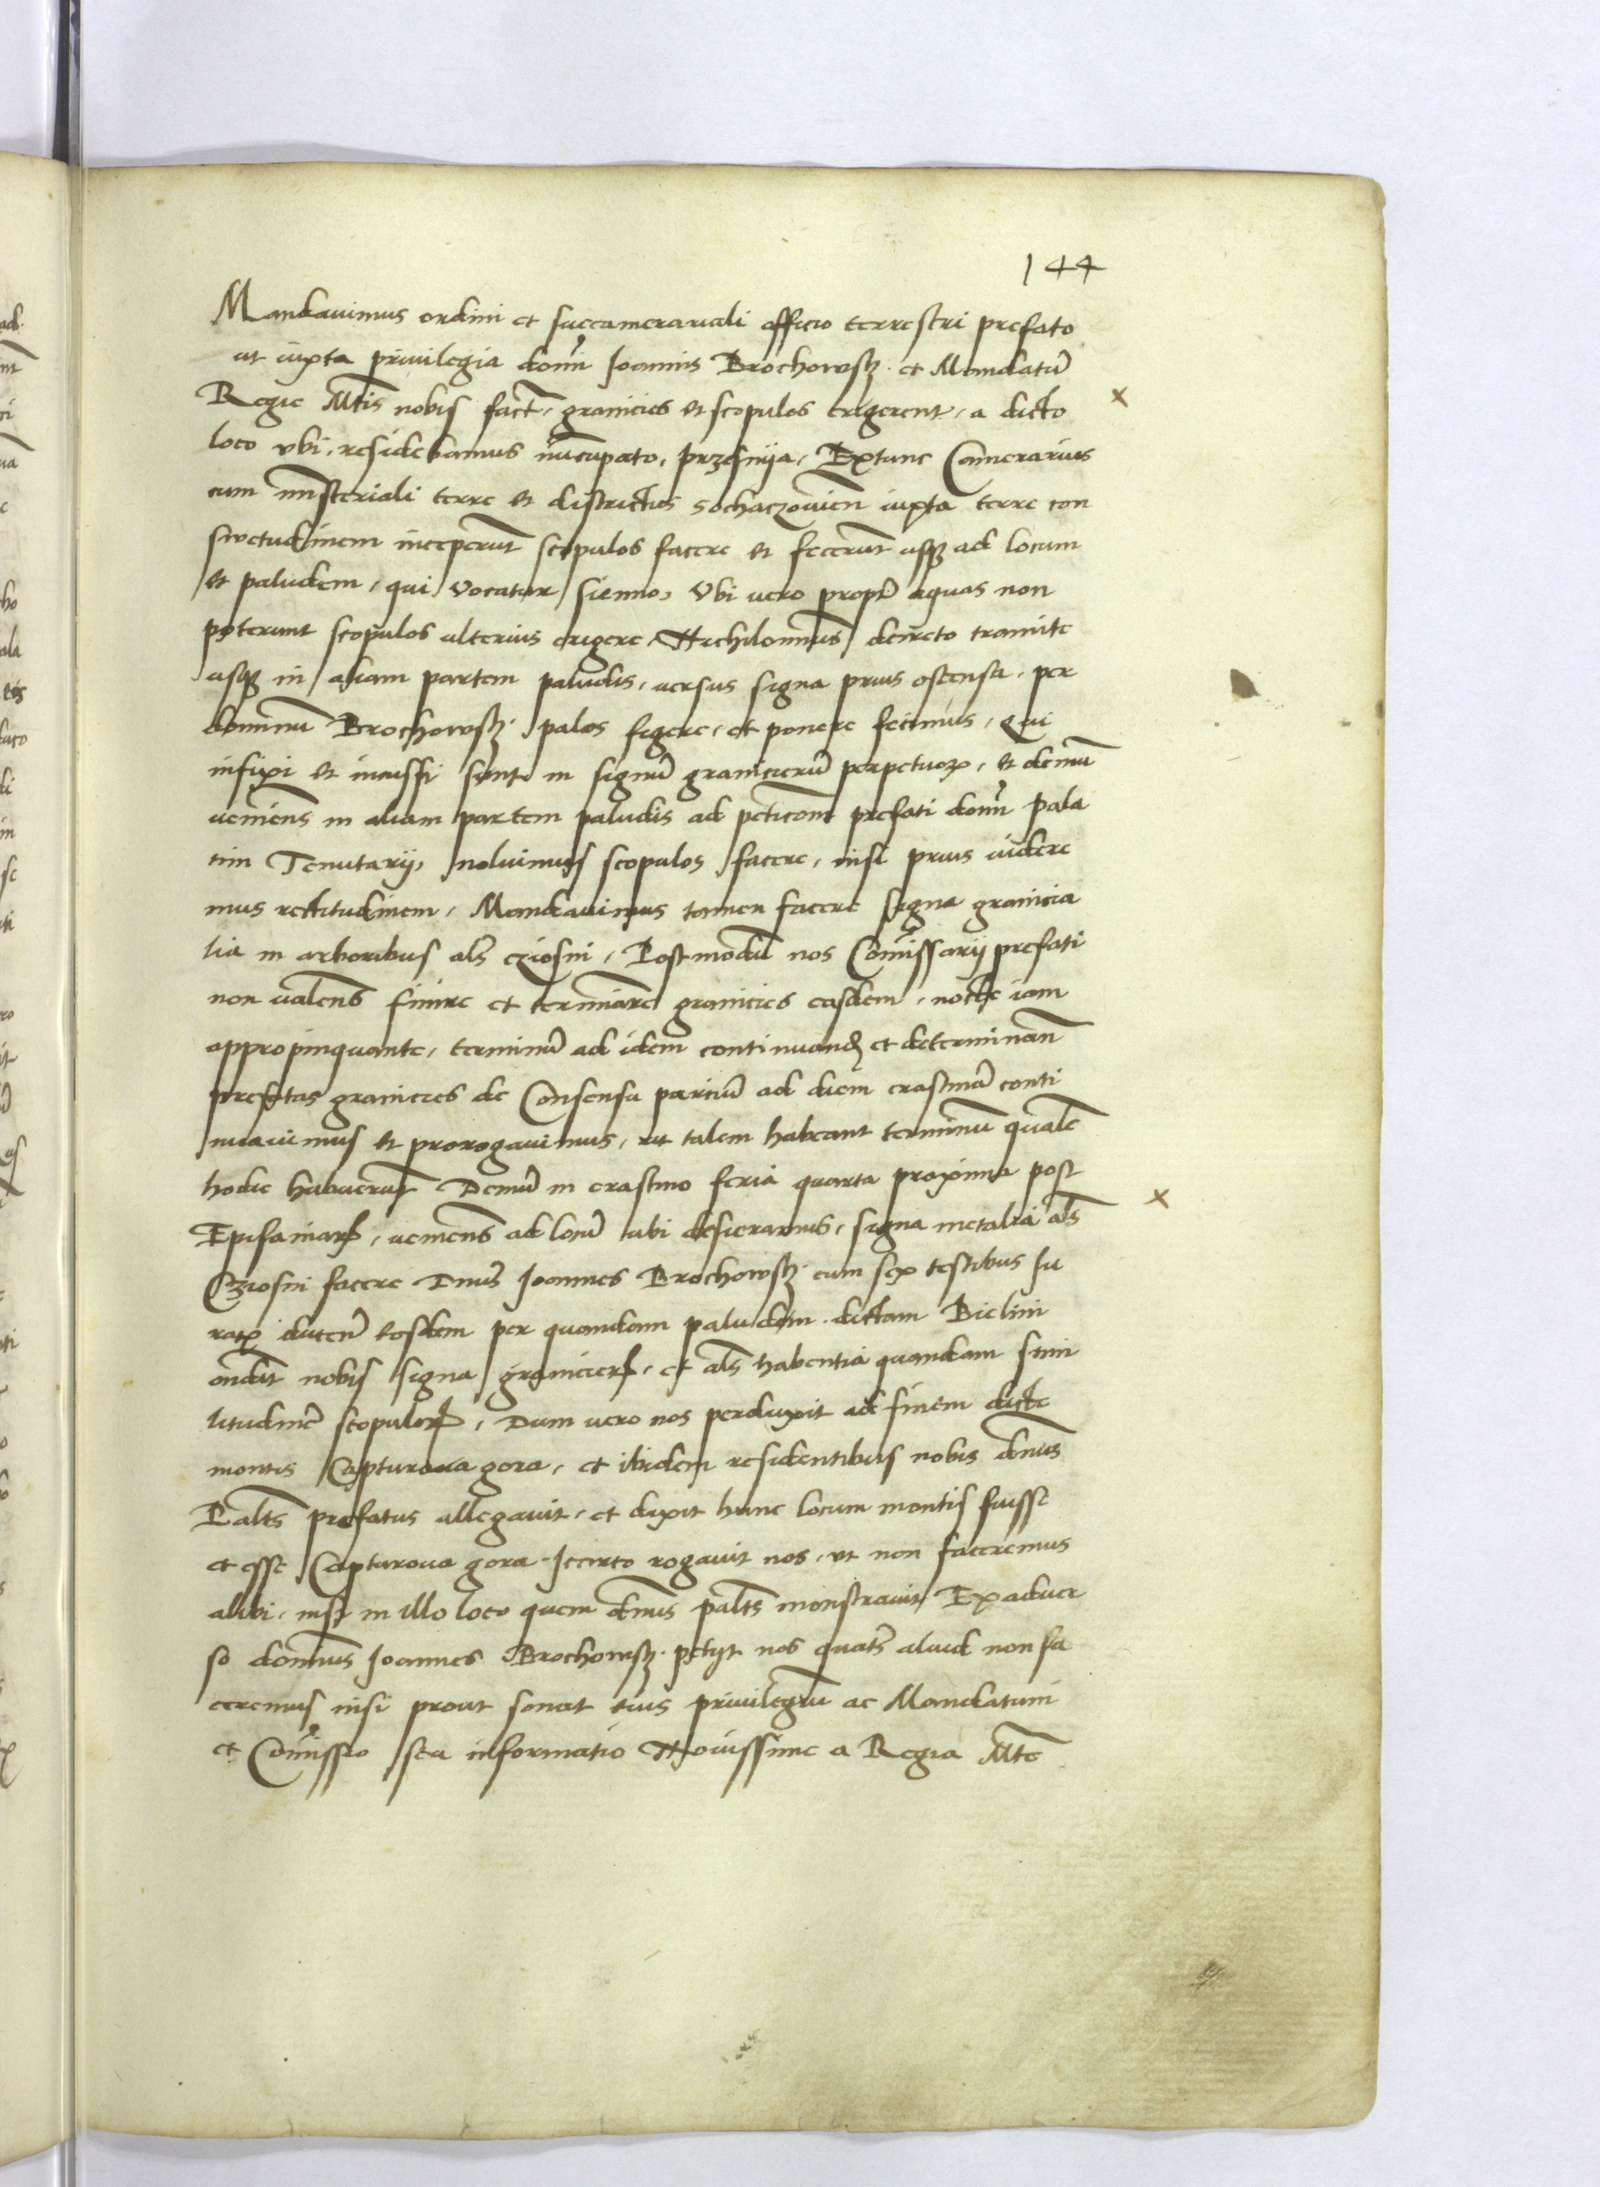 144
Mandauimus ordini et succamerariali officio terrestri prefato
ut iuxta priuilegia domi Joannis Brochowsk. et Mandatū
Regie Mtis nobis fact, granicies et scopulos erigerent, a dicto
loco vbi residebamus nūcupato, przesnija, Extunc Camerarius
cum misteriali terre et districtus Sochaczouien iuxta terre con
swetudinem inceperūt scopulos facere et fecerūt usq ad locum
et paludem, qui vocatur sienno, Vbi uero propt aquas non
poterunt scopulos ulterius erigere, Nichilominus directo tramite
usq in aliam partem paludis, uersus signa prius ostensa, per
dominū Brochowsk. palos figere, et ponere fecimus, Qui
infixi et incussi sunt in signū granicierū perpetuor, et demū
ueniens in aliam partem paludis ad peticom prefati domi pala
tini Tenutarij, noluimus scopulos facere, nisi prius uidere
mus rectitudinem, Mandauimus tamen facere signa granicia
lia in arboribus als cziosni, Postmodū nos Comissarij prefati
non ualens finire et terminare granicies easdem, nocte iam
appropinquante, terminū ad idem continuand et determinan
prefatas granicies de Consensu parciū ad diem crastinā conti
nuauimus et prorogauimus, ut talem habeant terminum qualē
hodie habuerūt Demū in crastino feria quarta proxima post
Epifaniar, ueniens ad locū ubi desieramus, signa metalia als
Cziosni facere Dnus Joannes Brochowsk. cum sex testibus Ju
rat ducen eosdem per quandam paludem dictam Bielini
ondit nobis signa granicier, et als habentia quandam simi
litudinē scopulor, Dum uero nos perduxit ad finem dicte
montis Capturoua gora, et ibidem residentibus nobis dnus
Palts prefatus allegauit, et duxit hunc locum montis fuisse
et esse Capturoua gora. Jccirco rogauit nos, ut non faceremus
alibi, nisi in illo loco quem dnus palts monstrauit Ex aduer
so dominus Joannes Brochowsk. petijt nos quats aliud non fa
ceremus nisi prout sonat eius priuilegiū ac Mandatum
et Comissio seu informatio Nouissime a Regia Mte